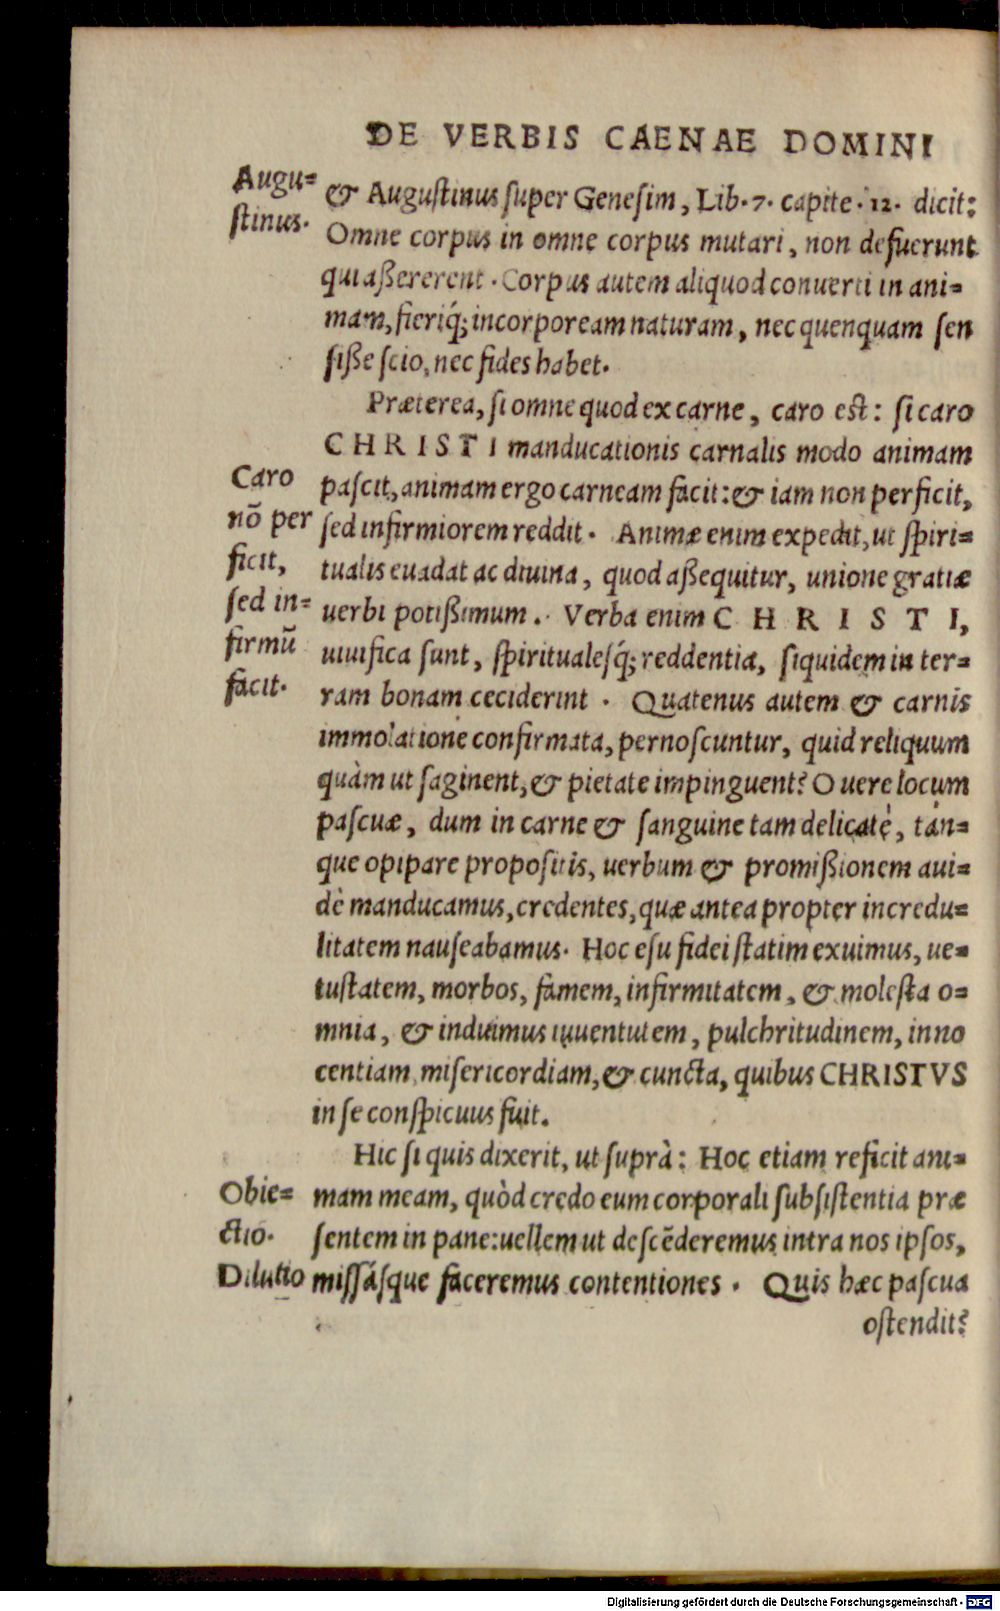 DE VERBIS CAENAE DOMINI
Augu=
stinus.
& Augustinus super Genesim, Lib. 7. capite. 12. dicit:
Omne corpus in omne corpus mutari, non defuerunt
qui aßererent. Corpus autem aliquod converti in ani=
mam, fieriq́; incorpoream naturam, nec quenquam sen
sißе scio, nec fides habet.
Præterea, si omne quod ex carne, caro est: si caro
CHRISTI manducationis carnalis modo animam
Caro
nõ per
ficit,
sed in=
firmũ
facit.
pascit, animam ergo carneam facit: & iam non perficit,
sed infirmiorem reddit. Animæ enim expedit, ut spiri=
tualis euadat ac diuina, quod aßequitur, unione gratiæ
uerbi potißimum. Verba enim CHRISTI,
uiuifica sunt, spiritualesq́; reddentia, siquidem in ter=
ram bonam ceciderint. Quatenus autem & carnis
immolatione confirmata, pernoscuntur, quid reliquum
quàm ut saginent, & pietate impinguent? O uere locum
pascuæ, dum in carne & sanguine tam delicatè, tán=
que opipare propositis, uerbum & promißionem aui=
dè manducamus, credentes, quæ antea propter incredu=
litatem nauseabamus. Hoc esu fidei statim exuimus, ue=
tustatem, morbos, famem, infirmitatem, & molesta o=
mnia, & induimus iuuentutem, pulchritudinem, inno
centiam, misericordiam, & cuncta, quibus CHRISTVS
in se conspicuus fuit.
Hic si quis dixerit, ut suprà: Hoc etiam reficit ani=
Obie=
ctio.
mam meam, quòd credo eum corporali subsistentia præ
sentem in pane: uellem ut descẽderemus intra nos ipsos,
Dilutio
missásque faceremus contentiones. Quis hæc pascua
ostendit?
Digitalisierung gefördert durch die Deutsche Forschungsgemeinschaft - DFG